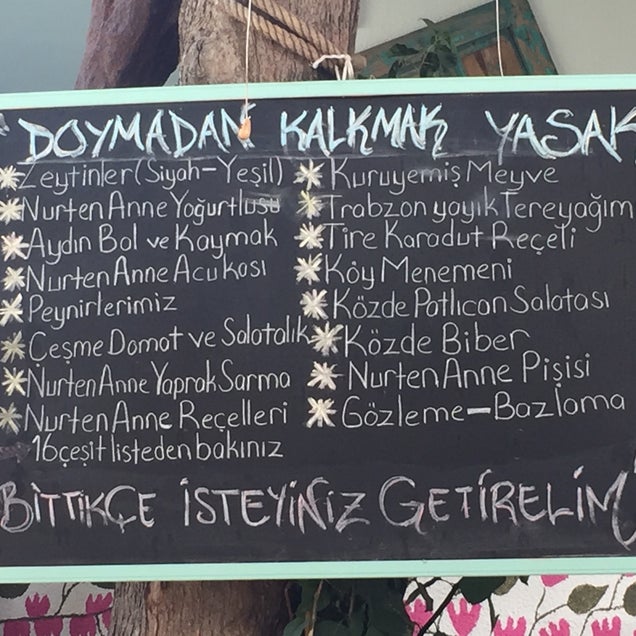 DOYMADAN KALKMAK YASAK
Zeytinler (Siyah-Yeşil)
Nurten Anne Yoğurtlusu
Aydın Bal ve Kaymak
Nurten Anne Acukası
Peynirlerimiz
Çeşme Domat ve Salatalık
Nurten Anne Yaprak Sarma
Nurten Anne Reçelleri
16 çeşit listeden bakınız
Kuruyemiş Meyve
Trabzon yayık Tereyağım
Tire Karadut Reçeli
Köy Menemeni
Közde Patlıcan Salatası
Közde Biber
Nurten Anne Pişisi
Gözleme-Bazlama
BİTTİKÇE İSTEYİNİZ GETİRELİM